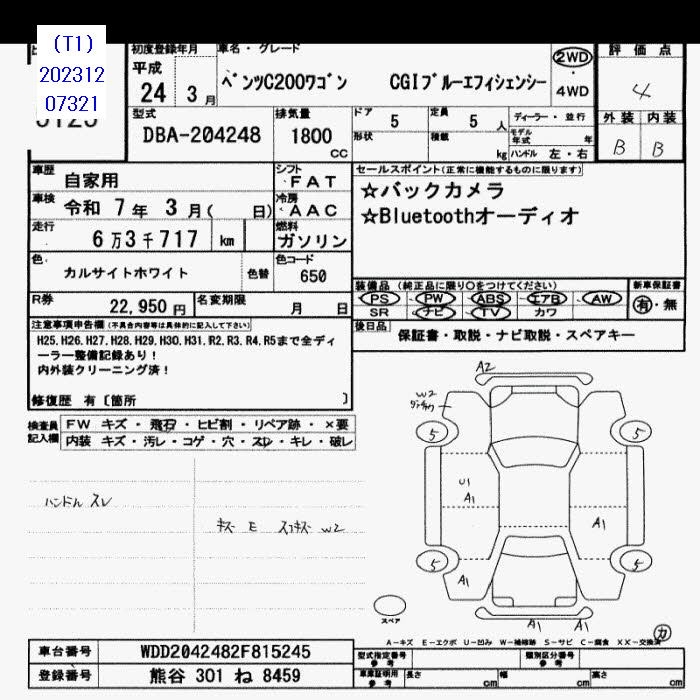 (T1)
202312
07321
初度登録年月
車名・グレード
平成
24 3月
ベンツC200ワゴン CGIブルーエフィシェンシー
2WD
4WD
評価点
4
外装 内装
B B
型式
DBA-204248
排気量
1800
CC
ドア
5
形状
定員
5人
積載
kg
ディーラー・並行
モデル年式 年
ハンドル 左・右
車歴
自家用
シフト
FAT
車検
令和 7年 3月( 日)
冷房
AAC
走行
6万3千717 km
燃料
ガソリン
色
カルサイトホワイト
色替
色コード
650
セールスポイント(正常に機能するものに限ります)
☆バックカメラ
☆Bluetoothオーディオ
装備品 (純正品に限り○をつけてください)
PS PW ABS エアB AW
SR ナビ TV カワ
新車保証書
有・無
後日品
保証書・取説・ナビ取説・スペアキー
R券
22,950円
名変期限
月 日
注意事項申告欄(不具合内容等は具体的に記入して下さい)
H25,H26,H27,H28,H29,H30,H31,R2,R3,R4,R5まで全ディ
ーラー整備記録あり!
内外装クリーニング済!
修復歴 有〔箇所 〕
検査員
記入欄
FW キズ・飛石・ヒビ割・リペア跡・×要
内装 キズ・汚レ・コゲ・穴・スレ・キレ・破レ
ハンドル スレ
キズ E スリキズ W2
A2
W2
5
5
U1
A1
A1
5
5
A1
スペア
A1 A1
A-キズ E-エクボ U-凹み W-補修跡 S-サビ C-腐食 XX-交換済
車台番号
WDD2042482F815245
登録番号
熊谷 301 ね 8459
型式指定番号
参考
類別区分番号
参考
車庫証明用
参考
長さ
cm
幅
cm
高さ
cm